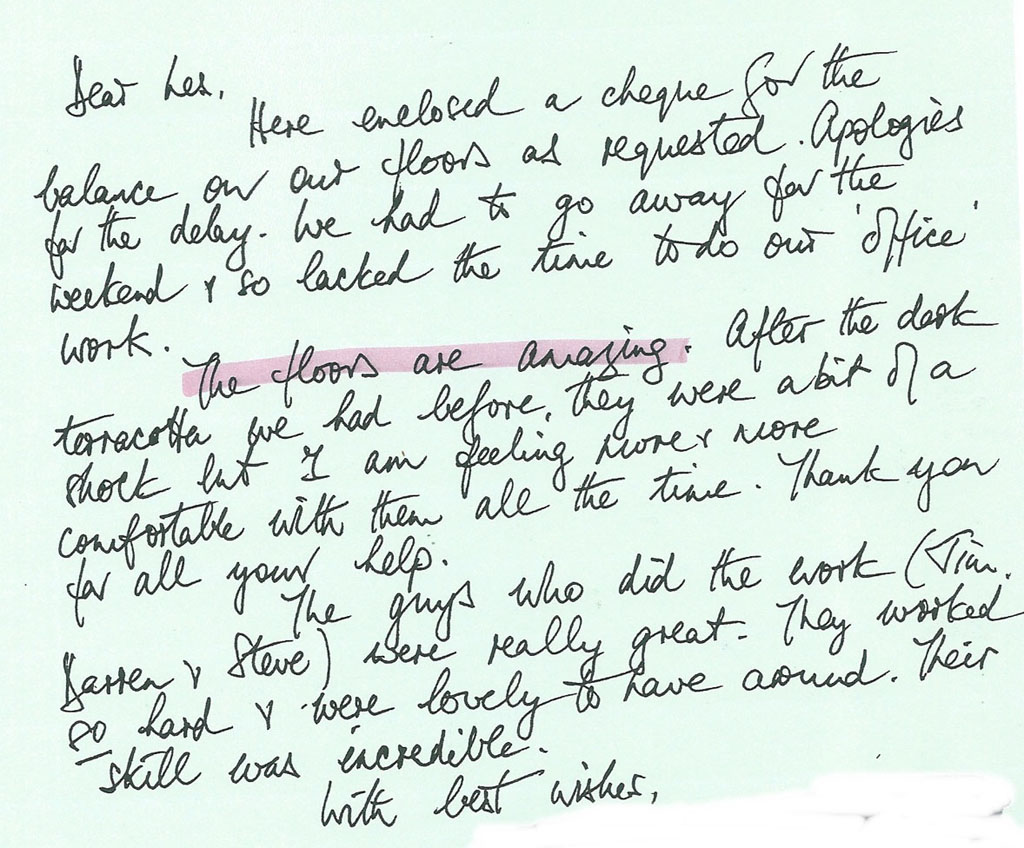 Dear Les,
Here enclosed a cheque for the
balance on our floors as requested. Apologies
for the delay. We had to go away for the
weekend & so lacked the time to do our 'office'
work.
The floors are amazing. After the dark
terracotta we had before, they were a bit of a
shock but I am feeling more & more
comfortable with them all the time. Thank you
for all your help.
The guys who did the work (Jim,
Darren & Steve) were really great. They worked
so hard & were lovely to have around. Their
skill was incredible.
With best wishes,